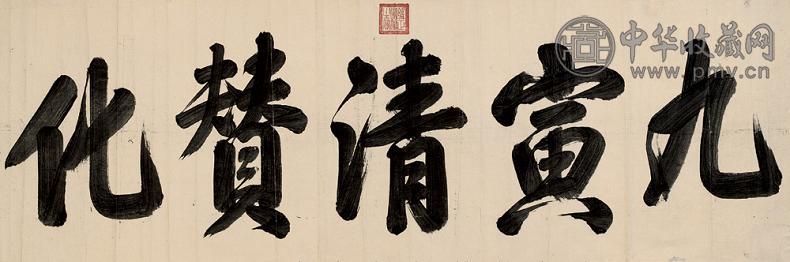 九寅清賛化
中华收藏网
www.pmv.cn